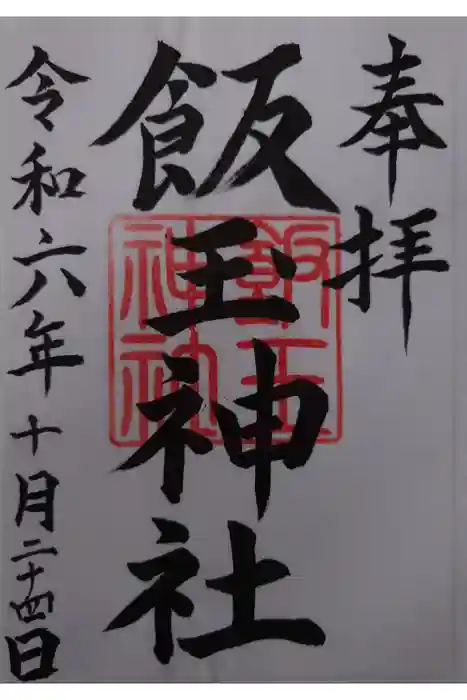 奉拝
飯玉神社
飯玉神社
令和六年十月二十四日